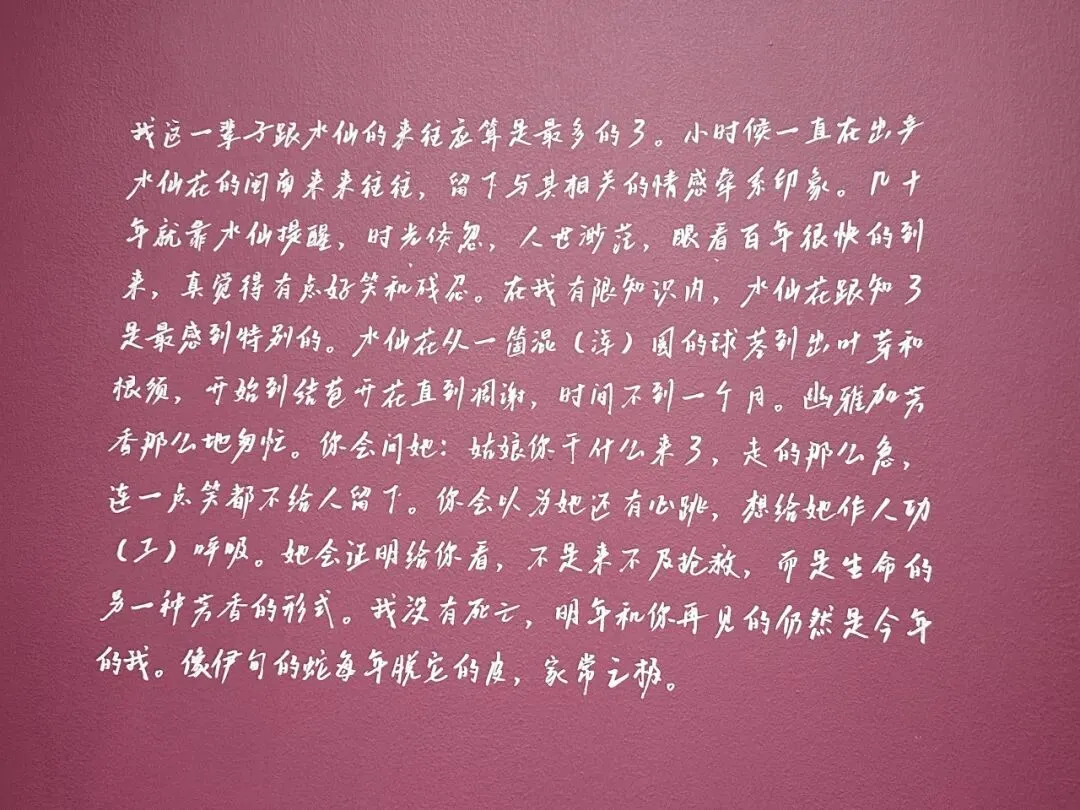 我这一辈子跟水仙的来往应算是最多的了。小时候一直在出产
水仙花的闽南来来往往，留下与其相关的情感牵系印象。几十
年就靠水仙提醒，时光倏忽，人世渺茫，眼看百年很快的到
来，真觉得有点好笑和残忍。在我有限知识内，水仙花跟知了
是最感到特别的。水仙花从一箇混（浑）圆的球茎到出叶芽和
根须，开始到结苞开花直到凋谢，时间不到一个月。幽雅加芳
香那么地匆忙。你会问她：姑娘你干什么来了，走的那么急，
连一点笑都不给人留下。你会以为她还有心跳，想给她作人功
（工）呼吸。她会证明给你看，不是来不及抢救，而是生命的
另一种芳香的形式。我没有死亡，明年和你再见的仍然是今年
的我。像伊甸的蛇每年脱它的皮，家常之极。